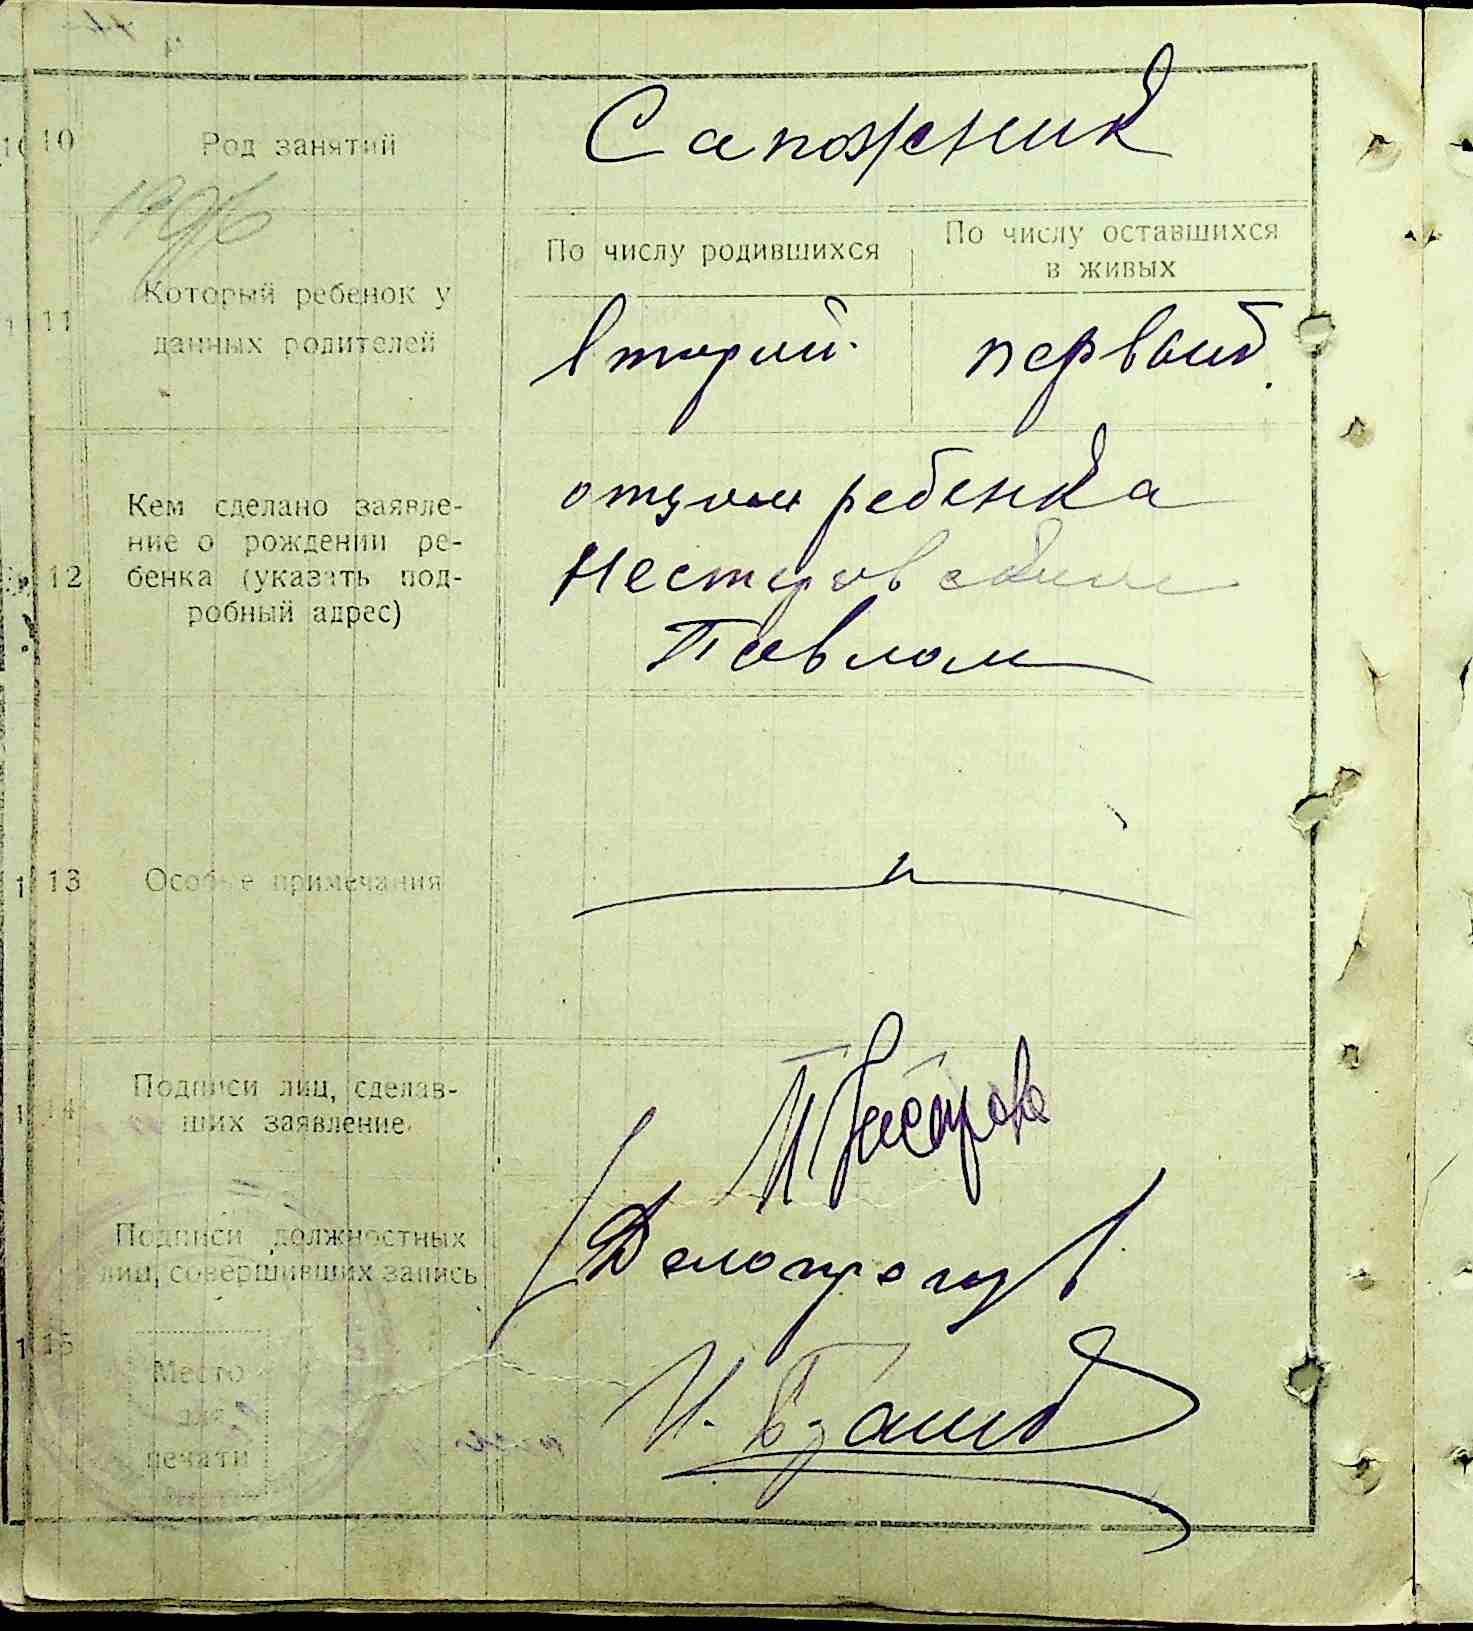 10 Род занятий Сапожник
По числу родившихся
По числу оставшихся
в живых
11 Который ребенок у
данных родителей
второй. первый.
12 Кем сделано заявле-
ние о рождении ре-
бенка (указать под-
робный адрес)
отцом ребенка
Нестеровским
Павлом
13 Особые примечания
14 Подписи лиц, сделав-
ших заявление
15 Подписи должностных
лиц, совершивших запись
Делопроизв.
Место
для
печати